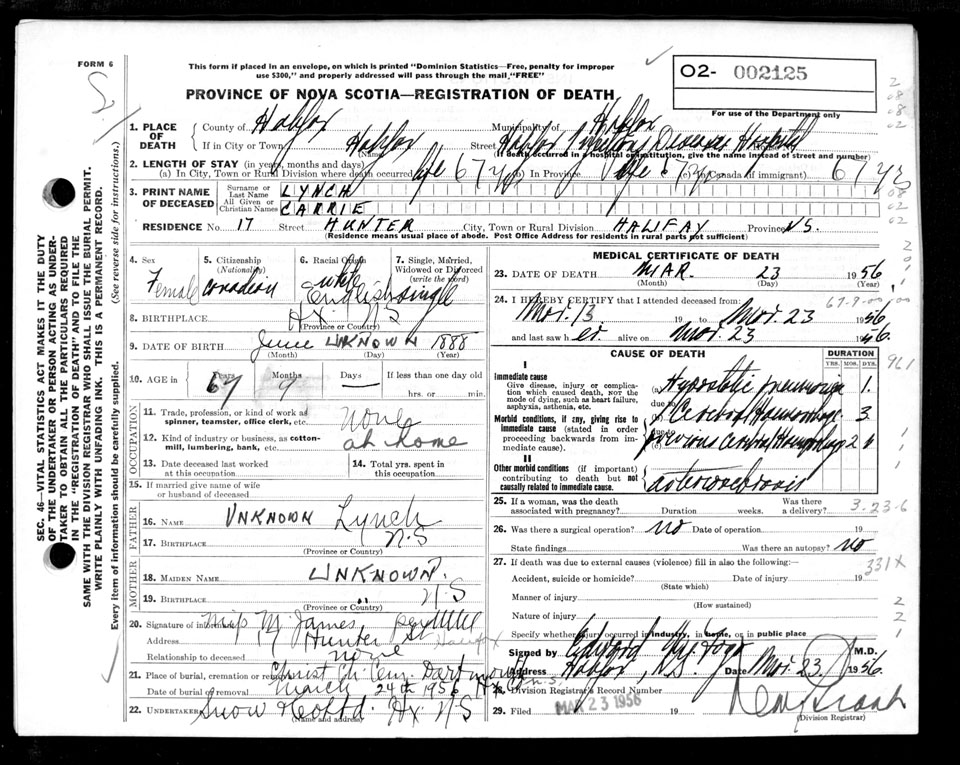 FORM 6
This form if placed in an envelope, on which is printed "Dominion Statistics—Free, penalty for improper
use $300," and properly addressed will pass through the mail "FREE"
O2- 002125
PROVINCE OF NOVA SCOTIA—REGISTRATION OF DEATH
For use of the Department only
1. PLACE OF DEATH
County of Halifax Municipality of Halifax
If in City or Town Halifax Street Halifax Hospital
(Name) (If death occurred in a hospital or institution, give the name instead of street and number)
2. LENGTH OF STAY (in years, months and days)
(a) In City, Town or Rural Division where death occurred life 67 yrs (b) In Province life 67 yrs (c) In Canada (if immigrant) 67 yrs
3. PRINT NAME OF DECEASED
Surname or Last Name LYNCH
All Given or Christian Names CARRIE
RESIDENCE No. 17 Street HUNTER City, Town or Rural Division HALIFAX Province N.S.
(Residence means usual place of abode. Post Office Address for residents in rural parts not sufficient)
4. Sex Female
5. Citizenship (Nationality) Canadian
6. Racial Origin white English
7. Single, Married, Widowed or Divorced (write the word) single
8. BIRTHPLACE Hx. N S
(Province or Country)
9. DATE OF BIRTH June UNKNOWN 1888
(Month) (Day) (Year)
10. AGE in Years 67 Months 9 Days — If less than one day old
hrs. or min.
OCCUPATION
11. Trade, profession, or kind of work as
spinner, teamster, office clerk, etc. none
12. Kind of industry or business, as cotton-
mill, lumbering, bank, etc. at home
13. Date deceased last worked
at this occupation
14. Total yrs. spent in
this occupation
15. If married give name of wife
or husband of deceased
FATHER
16. NAME UNKNOWN Lynch
17. BIRTHPLACE N.S
(Province or Country)
MOTHER
18. MAIDEN NAME UNKNOWN
19. BIRTHPLACE N S
(Province or Country)
20. Signature of informant M. James per
Address 17 Hunter St Halifax
Relationship to deceased none
21. Place of burial, cremation or removal Christ Ch Cem. Dartmouth
Date of burial or removal March 24th 1956 Hx Co N.S.
22. UNDERTAKER Snow & Co Ltd. Hx. N S
(Name and address)
MEDICAL CERTIFICATE OF DEATH
23. DATE OF DEATH MAR. 23 1956
(Month) (Day) (Year)
24. I HEREBY CERTIFY that I attended deceased from:
Mar. 13 19 to Mar. 23 1956
and last saw h er alive on Mar. 23 1956.
CAUSE OF DEATH
DURATION
YRS. MOS. DYS.
I
Immediate cause
Give disease, injury or complica-
tion which caused death, NOT the
mode of dying, such as heart failure,
asphyxia, asthenia, etc.
(a) Hypostatic pneumonia 1.
due to
Morbid conditions, if any, giving rise to
immediate cause (stated in order
proceeding backwards from im-
mediate cause).
(b) Cerebral Haemorrhage 3
due to
(c) previous Cerebral Haemorrhage 2 6
II
Other morbid conditions (if important)
contributing to death but not
causally related to immediate cause.
arteriosclerosis
25. If a woman, was the death
associated with pregnancy? Duration weeks. Was there
a delivery?
3-23-6
26. Was there a surgical operation? no Date of operation 19
State findings Was there an autopsy? no
27. If death was due to external causes (violence) fill in also the following:
331X
Accident, suicide or homicide? Date of injury 19
(State which)
Manner of injury
(How sustained)
Nature of injury
Specify whether injury occurred in industry, in home, or in public place
Signed by M.D.
Address Halifax, N.S. Date Mar. 23 1956.
28. Division Registrar's Record Number
29. Filed MAR 23 1956 19
(Division Registrar)
SEC. 46—VITAL STATISTICS ACT MAKES IT THE DUTY
OF THE UNDERTAKER OR PERSON ACTING AS UNDER-
TAKER TO OBTAIN ALL THE PARTICULARS REQUIRED
IN THE "REGISTRATION OF DEATH" AND TO FILE THE
SAME WITH THE DIVISION REGISTRAR WHO SHALL ISSUE THE BURIAL PERMIT.
WRITE PLAINLY WITH UNFADING INK. THIS IS A PERMANENT RECORD.
Every item of information should be carefully supplied. (See reverse side for instructions.)